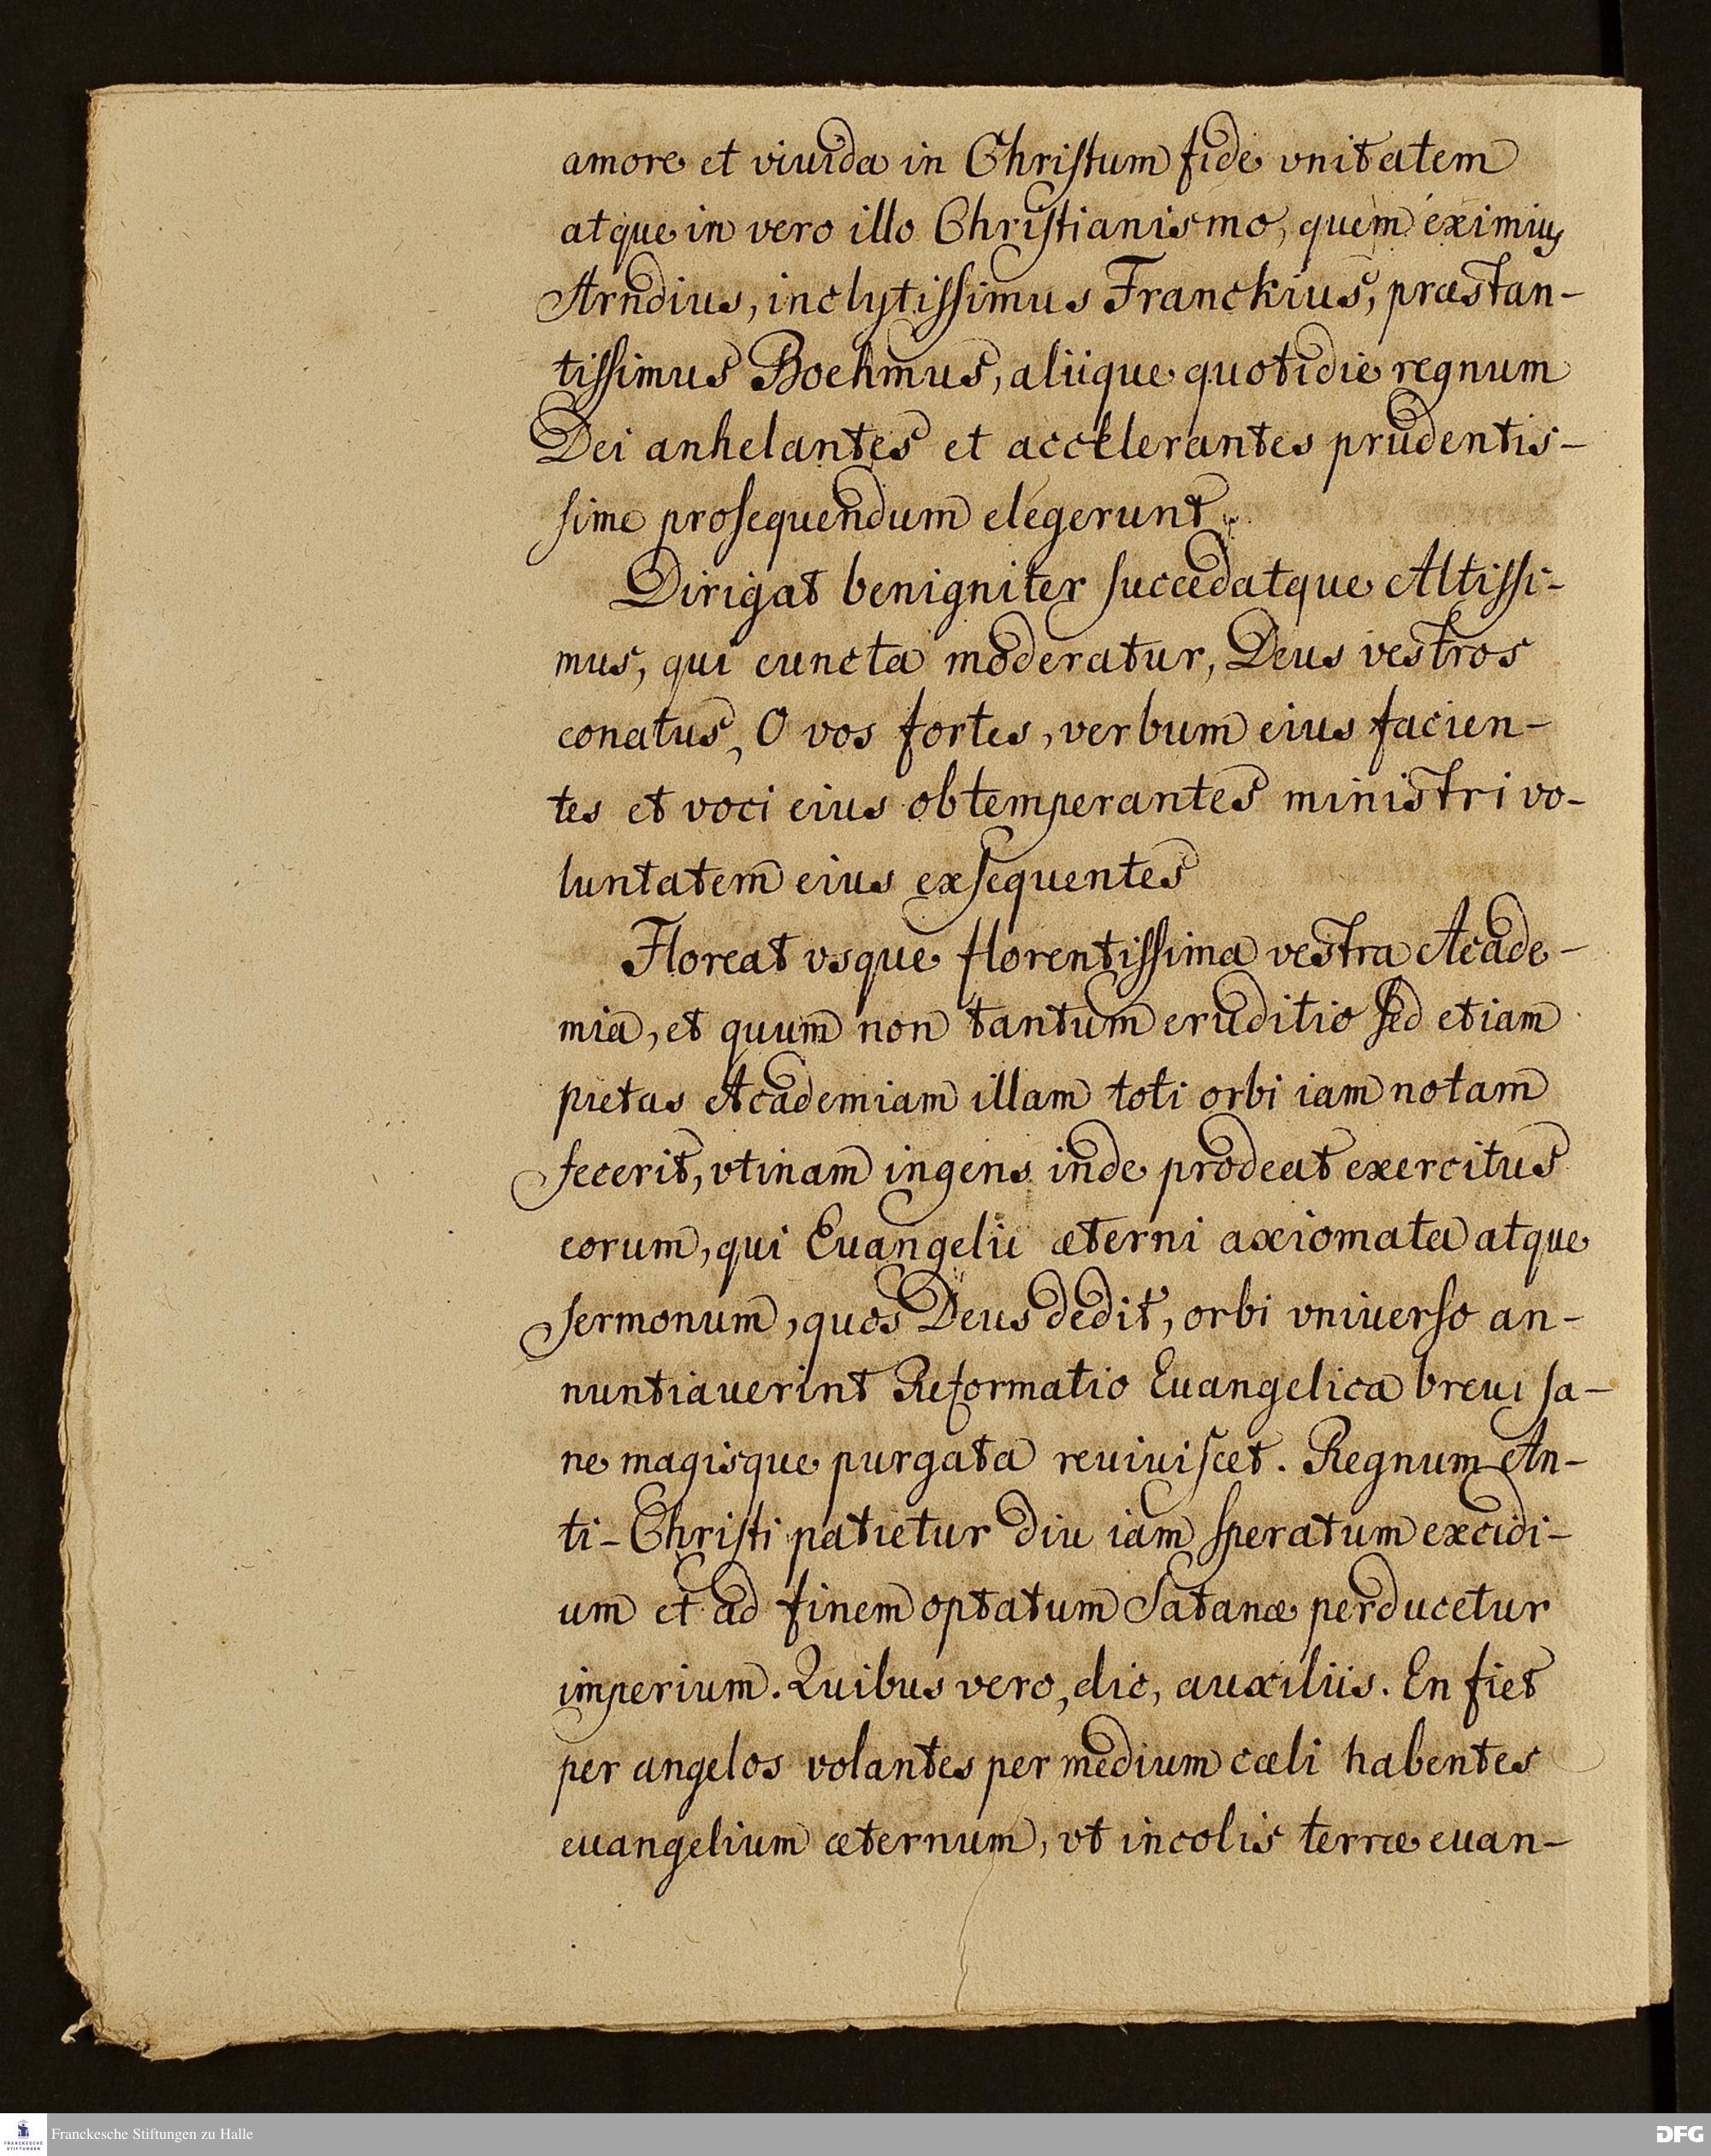 amore et viuida in Christum fide vnitatem
atque in vero illo Christianismo, quem eximius
Arndius, inclytissimus Franckius, præstan-
tissimus Boehmus, aliique quotidie regnum
Dei anhelantes et accelerantes prudentis-
sime prosequendum elegerunt.
Dirigat benigniter succedatque Altissi-
mus, qui cuncta moderatur, Deus vestros
conatus, O vos fortes, verbum eius facien-
tes et voci eius obtemperantes ministri vo-
luntatem eius exsequentes
Floreat vsque florentissima vestra Acade-
mia, et quum non tantum eruditio sed etiam
pietas Academiam illam toti orbi iam notam
fecerit, vtinam ingens inde prodeat exercitus
eorum, qui Euangelii æterni axiomata atque
sermonum, quos Deus dedit, orbi vniuerso an-
nuntiauerint Reformatio Euangelica breui sa-
ne magisque purgata reuiuiscet. Regnum An-
ti-Christi patietur diu iam speratum excidi-
um et ad finem optatum Satanæ perducetur
imperium. Quibus vero, dic, auxiliis. En fiet
per angelos volantes per medium cæli habentes
euangelium æternum, vt incolis terræ euan-
Franckesche Stiftungen zu Halle
DFG